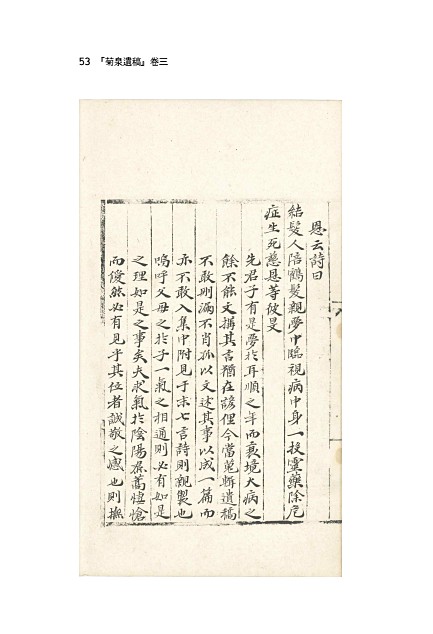 53 『菊泉遺稿』卷三
恩云詩曰
結髮人陪鶴髮親夢中臨視病中身一投靈藥除危
症生死慈恩等彼旻
先君子有是夢於耳順之年而衰境大病之
餘不能文搆其言猶在諺俚今當蒐輯遺稿
不敢刪漏不肖孤以文述其事以成一篇而
亦不敢入集中附見于末七言詩則親製也
嗚呼父母之於子一氣之相通則必有如是
之理如是之事矣夫求氣於陰陽焄蒿悽愴
而僾然必有見乎其位者誠敬之感也則撫